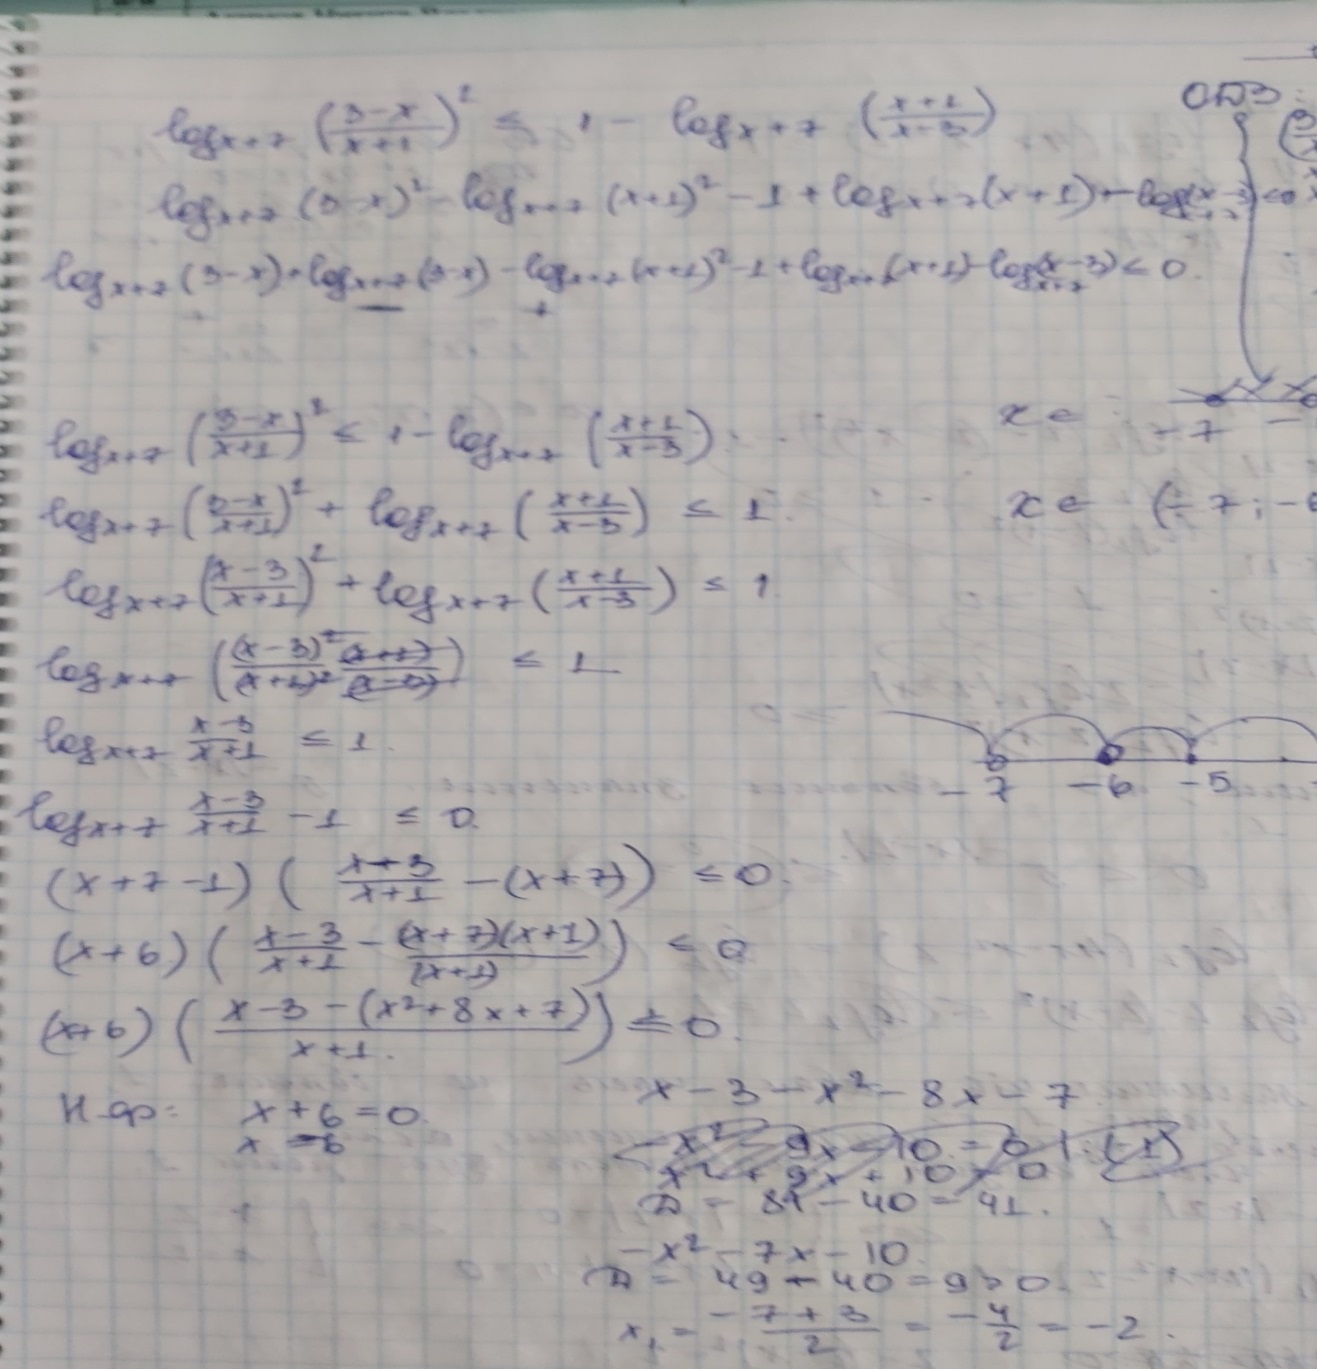 log_{x+7} (\frac{3-x}{x+1})^2 ≤ 1 - log_{x+7} (\frac{x+1}{x-3})
ОДЗ:
log_{x+7} (3-x)^2 - log_{x+7} (x+1)^2 - 1 + log_{x+7} (x+1) - log_{x+7} (x-3) ≤ 0
log_{x+7} (3-x) + log_{x+7} (3-x) - log_{x+7} (x+1)^2 - 1 + log_{x+7} (x+1) - log_{x+7} (x-3) ≤ 0.
x ∈
-7
log_{x+7} (\frac{3-x}{x+1})^2 ≤ 1 - log_{x+7} (\frac{x+1}{x-3}).
x ∈ (-7; -6
log_{x+7} (\frac{3-x}{x+1})^2 + log_{x+7} (\frac{x+1}{x-3}) ≤ 1.
log_{x+7} (\frac{x-3}{x+1})^2 + log_{x+7} (\frac{x+1}{x-3}) ≤ 1
log_{x+7} (\frac{(x-3)^2 (x+1)}{(x+1)^2 (x-3)}) ≤ 1
log_{x+7} \frac{x-3}{x+1} ≤ 1.
-7 -6 -5
log_{x+7} \frac{x-3}{x+1} - 1 ≤ 0.
(x+7-1) (\frac{x+3}{x+1} - (x+7)) ≤ 0.
(x+6) (\frac{x-3}{x+1} - \frac{(x+7)(x+1)}{(x+1)}) ≤ 0
(x+6) (\frac{x-3-(x^2+8x+7)}{x+1}) ≤ 0.
Н.ф: x+6=0.
x=-6
x-3-x^2-8x-7
-x^2-9x-10=0 |·(-1)
x^2+9x+10=0
D = 81-40=41.
-x^2-7x-10.
D = 49-40=9>0.
x_1 = \frac{-7+3}{2} = -\frac{4}{2} = -2.